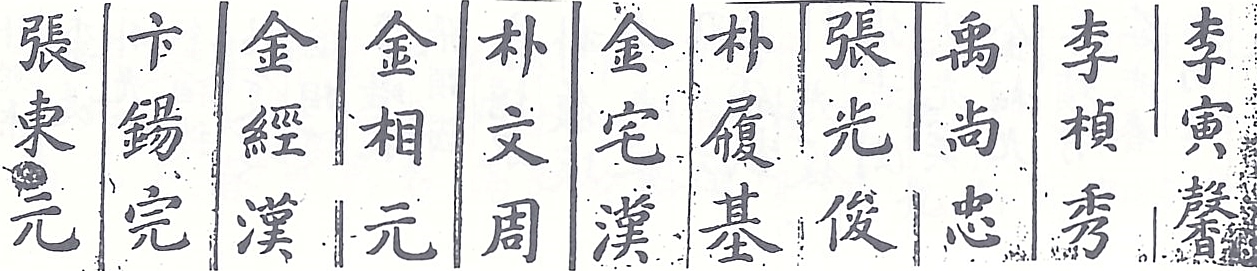 李寅馨
李楨秀
禹尚忠
張光俊
朴履基
金宅漢
朴文周
金相元
金經漢
卞錫完
張東元